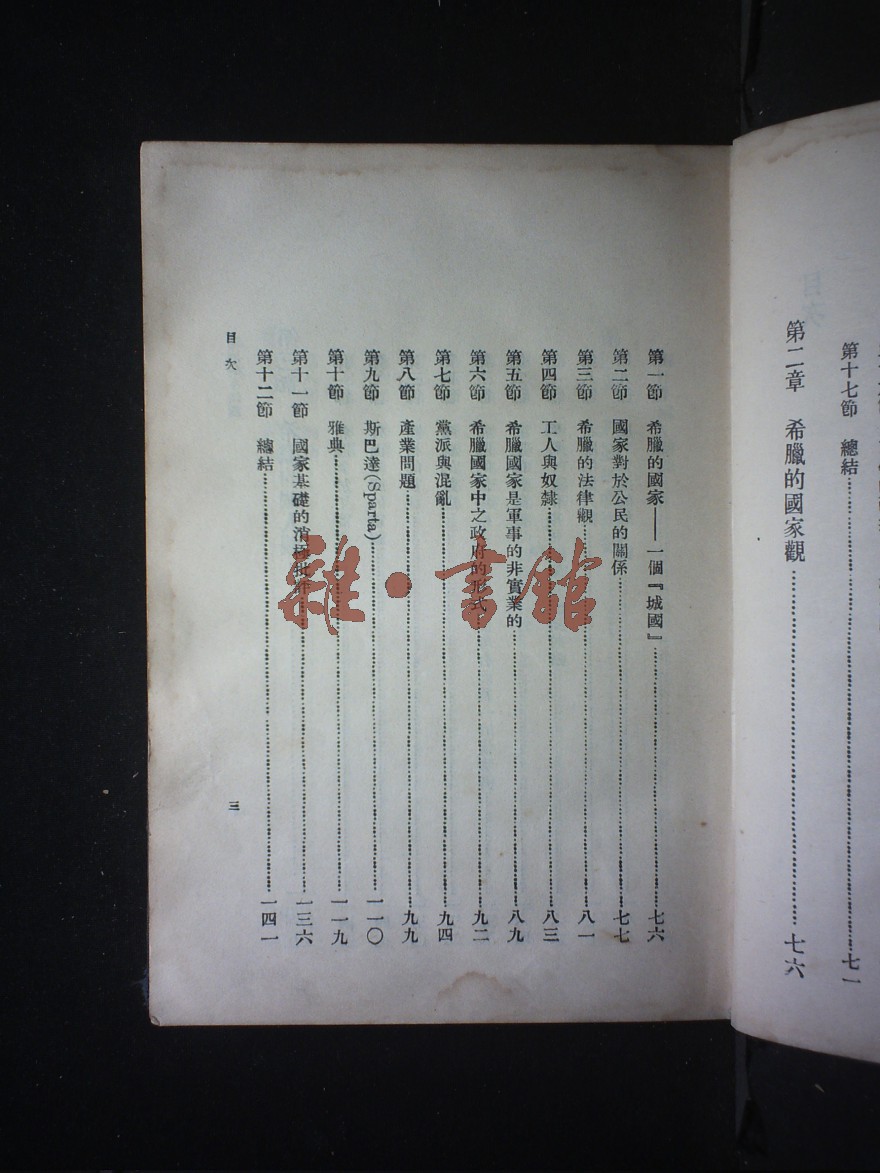 第十七節　總結……七一
第二章　希臘的國家觀……七六
第一節　希臘的國家——一個『城國』……七六
第二節　國家對於公民的關係……七七
第三節　希臘的法律觀……八一
第四節　工人與奴隸……八三
第五節　希臘國家是軍事的非實業的……八九
第六節　希臘國家中之政府的形式……九二
第七節　黨派與混亂……九四
第八節　產業問題……九九
第九節　斯巴達(Sparta)……一一〇
第十節　雅典……一一九
第十一節　國家基礎的消極批評……一三六
第十二節　總結……一四一
目次
三
雜·書館